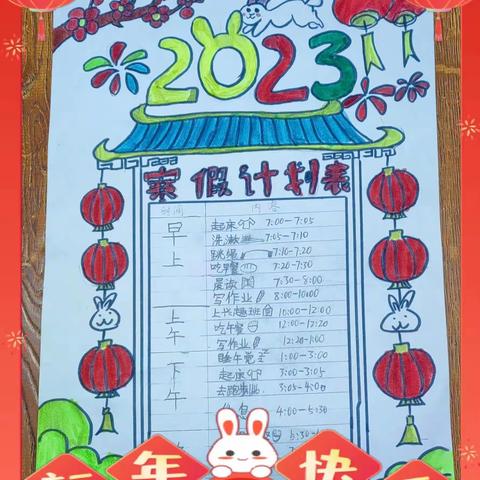 2023
寒假计划表
时间 内容
早上
起床 7:00-7:05
洗漱 7:05-7:10
跳绳 7:10-7:20
吃早餐 7:20-7:30
晨读 7:30-8:00
写作业 8:00-10:00
上午
上兴趣班 10:00-12:00
吃午餐 12:00-12:20
写作业 12:20-1:00
下午
睡午觉 1:00-3:00
起床 3:00-3:05
去跑步 3:05-4:00
休息 4:00-5:30
年 快